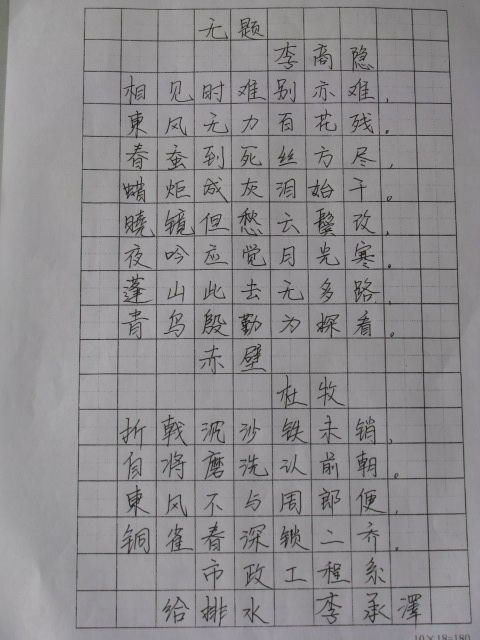 无题
李商隐
相见时难别亦难,
東风无力百花残。
春蚕到死丝方尽,
蜡炬成灰泪始干。
曉镜但愁云鬓改,
夜吟应觉月光寒。
蓬山此去无多路,
青鸟殷勤为探看。
赤壁
杜牧
折戟沉沙铁未销,
自将磨洗认前朝。
東风不与周郎便,
铜雀春深锁二乔。
市政工程系
给排水 李承澤
10×18=180